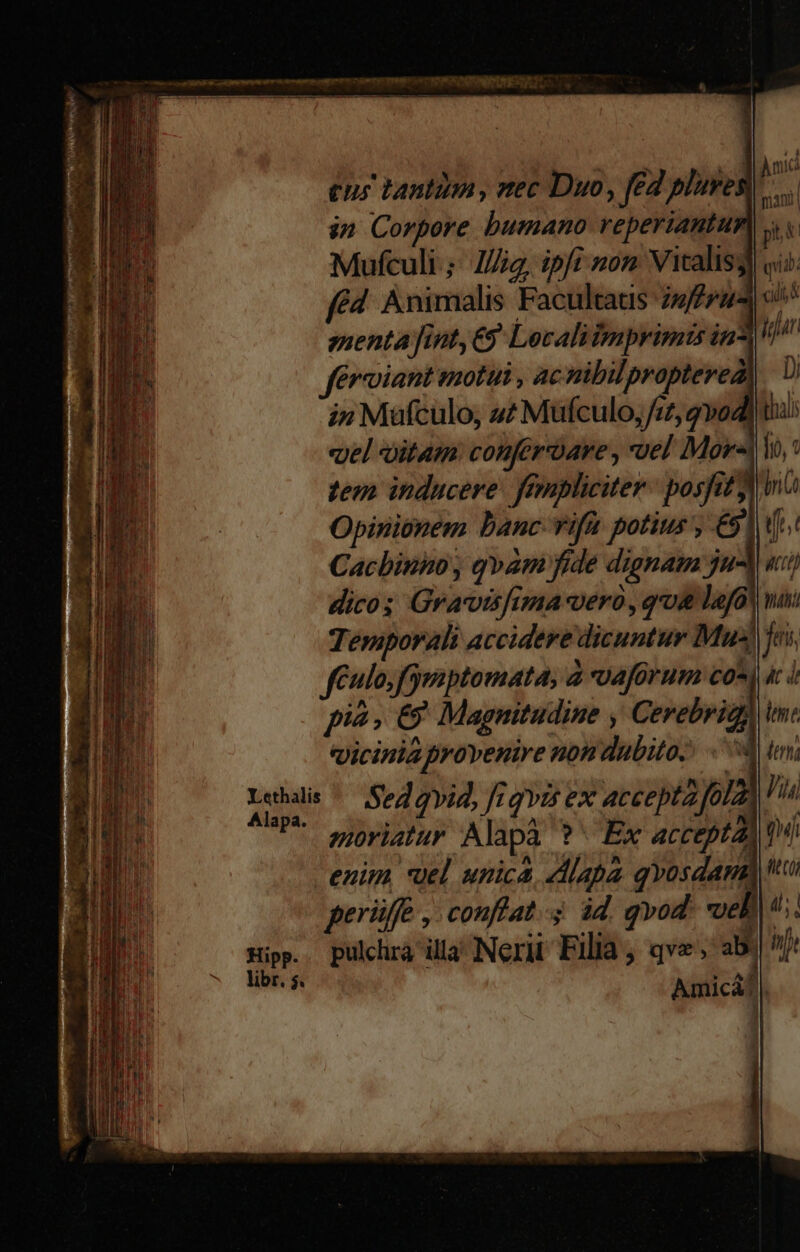 tus tantùm, nec Duo, ſed plures
in Corpore humano reperiantur
Muſculi; Illiq; ipſi non Vitalis,
ſed Animalis Facultatis inſtru-
menta ſint, & Locali imprimis in-
ſerviant motui, ac nihil proptereà
in Muſculo, ut Muſculo, ſit, qvod
vel vitam conſervare, vel Mor-
tem inducere ſimpliciter posſit,
Opinionem hanc riſu potius, &
Cachinno, qvàm fide dignam ju-
dico; Gravisſima verò, qvæ læſo
Temporali accidere dicuntur Mu-
ſculo, ſymptomata, à vaſorum co-
piâ, & Magnitudine, Cerebriq;
viciniâ provenire non dubito.
Lethalis Alapa.
Sed qvid, ſi qvis ex acceptâ ſolâ
moriatur Alapâ? Ex acceptâ
enim vel unicâ Alapâ qvosdam
periiſſe, conſtat; id qvod vel
Hipp. libr. 5.
pulchra illa Nerii Filia, qvæ, ab
Amicâ